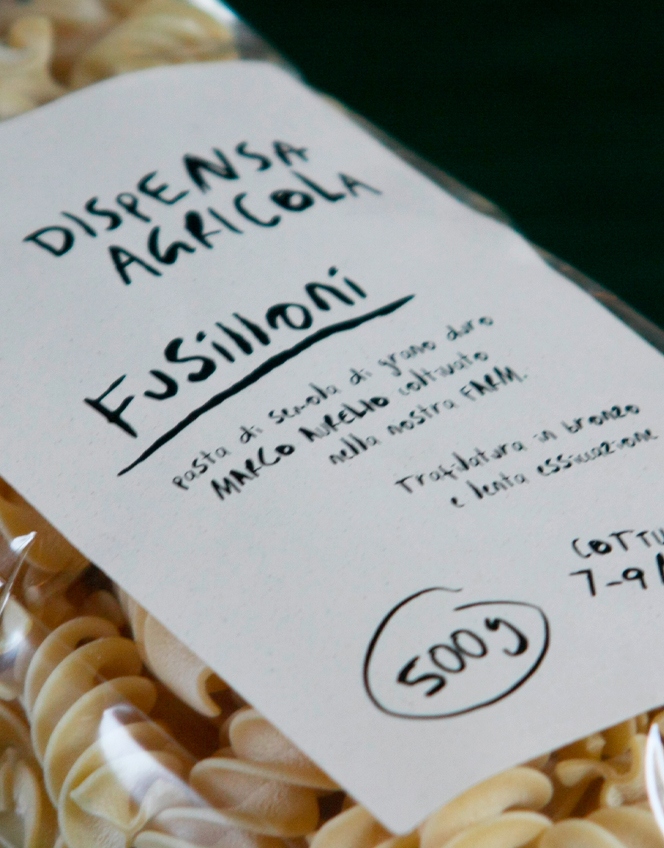 DISPENSA
AGRICOLA
Fusilloni
pasta di semola di grano duro
MARCO AURELIO coltivato
nella nostra FARM.
Trafilatura in bronzo
e lenta essiccazione
COTTU
7-9
500g